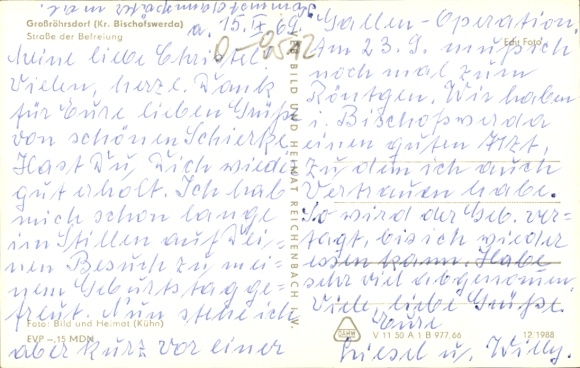 Großröhrsdorf (Kr. Bischofswerda)
Straße der Befreiung
a. 15. IX 69.
0-0512
Meine liebe Christel!
Vielen, herzl. Dank
für Eure lieben Grüße
von schönen Schierke.
Hast Du, Dich wieder
gut erholt. Ich hab
mich schon lange
im Stillen auf Dei-
nen Besuch zu mei-
nem Geburtstag ge-
freut. Nun stehe ich
aber kurz vor einer
Gallen-Operation.
Am 23.9. muß ich
noch mal zum
Röntgen. Wir haben
i. Bischofswerda
einen guten Arzt,
zu dem ich auch
Vertrauen habe.
So wird der Geb. ver-
tagt, bis ich wieder
essen kann. Habe
sehr viel abgenommen.
Viele liebe Grüße.
Eure
Liesel u. Willy.
Echt Foto
BILD UND HEIMAT REICHENBACH I. V.
Foto: Bild und Heimat (Kühn)
EVP -.15 MDN
V 11 50 A 1 B 977,66
12/1988